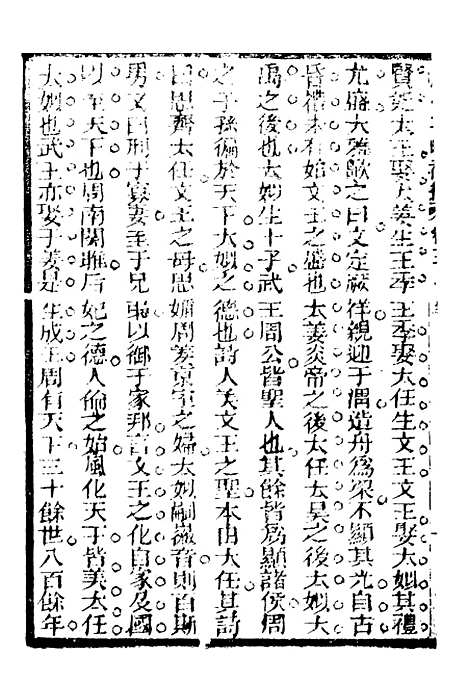 賢美太王娶大姜生王季王季娶大任生文王文王娶大姒其禮
尤盛大雅歌之曰文定厥祥親迎于渭造舟爲梁不顯其光自古
昏禮未有始文王之盛也太姜炎帝之後太任大昊之後太姒大
禹之後也太姒生十子武王周公皆聖人也其餘皆爲顯諸侯周
之子孫徧於天下大姒之德也詩人美文王之聖本由大任其詩
曰思齊太任文王之母思媚周姜京室之婦太姒嗣徽音則百斯
男又曰刑于寡妻至于兄弟以御于家邦言文王之化自家及國
以至天下也周南關雎后妃之德人倫之始風化天下皆美太任
大姒也武王亦娶于姜是生成王周有天下三十餘世八百餘年